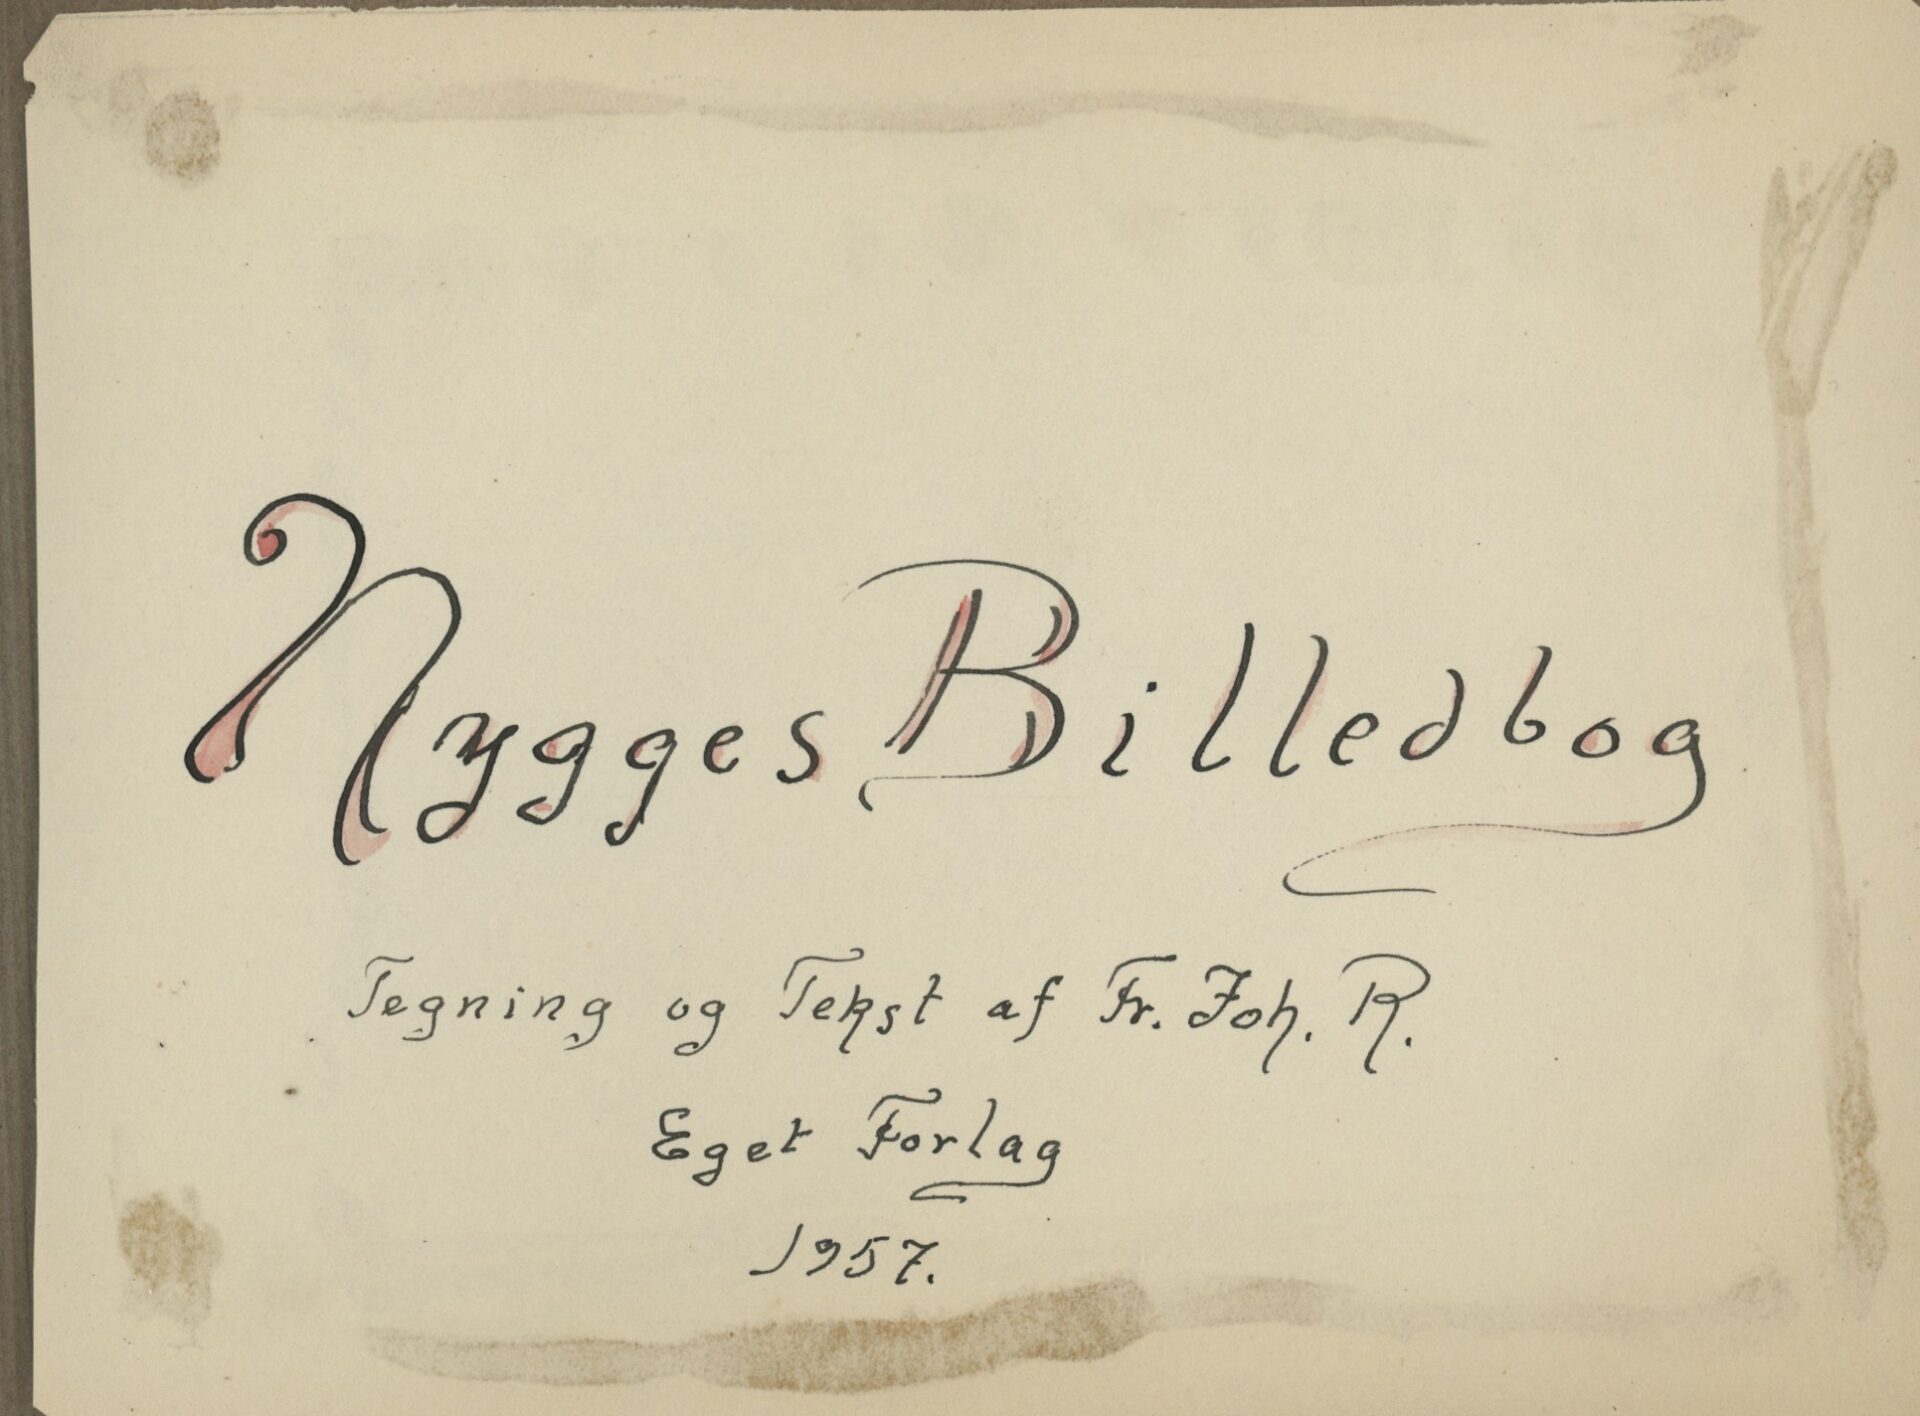 Nygges Billedbog
Tegning og Tekst af Fr. Joh. R.
Eget Forlag
1957.